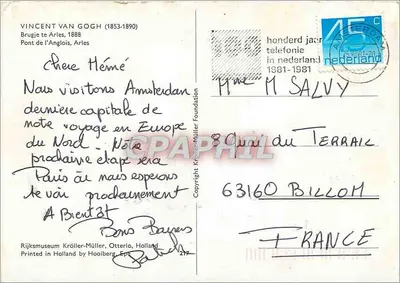 VINCENT VAN GOGH (1853-1890)
Brugje te Arles, 1888
Pont de l'Anglois, Arles
Chere Mémé
Nous visitons Amsterdam
dernière capitale de
notre voyage en Europe
du Nord - Notre
prochaine etape sera
Paris où nous esperons
te voir prochainement
A Bientôt
Bons Baisers
Patrick
Rijksmuseum Kröller-Müller, Otterlo, Holland
Printed in Holland by Hooiberg,
Copyright Kröller-Müller Foundation
100
honderd jaar
telefonie
in nederland
1881-1981
45 c
nederland
Mme M SALVY
8 Quai du TERRAIL
63160 BILLOM
FRANCE
CPAPHIL